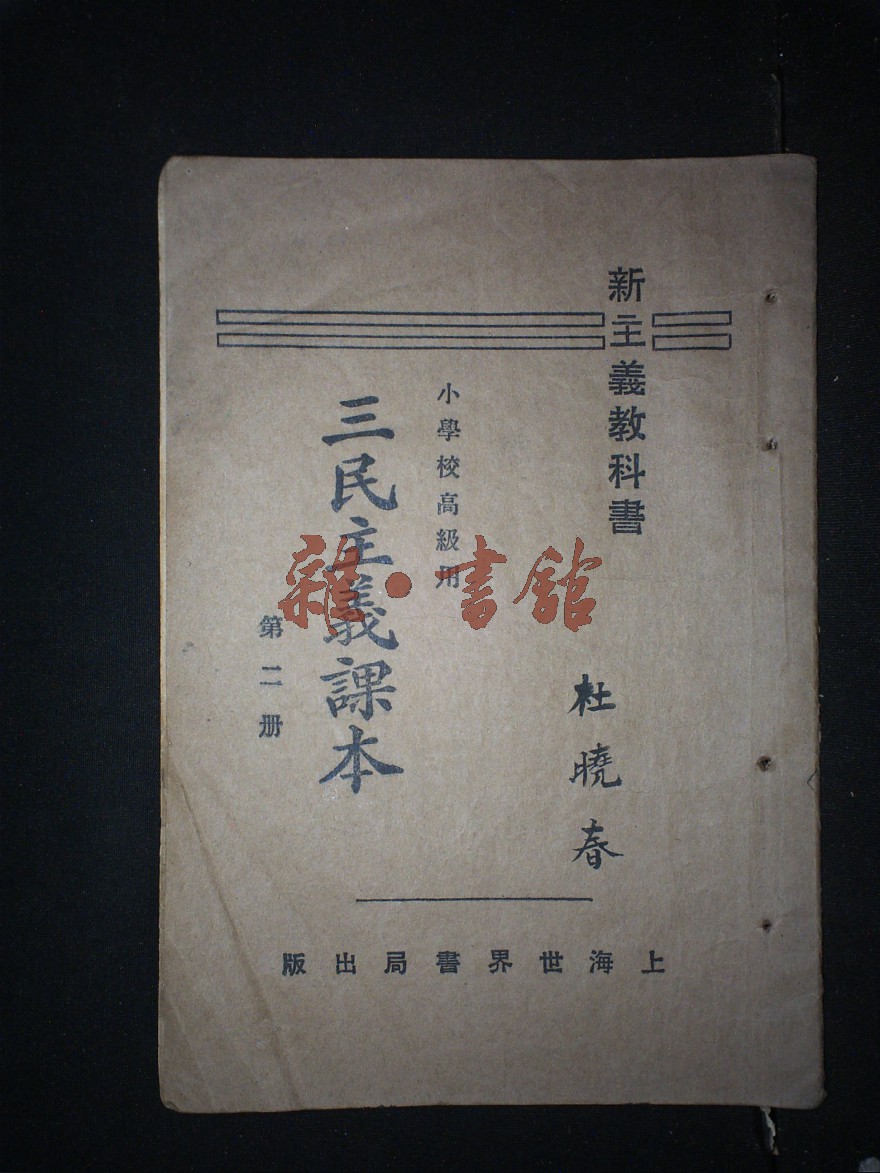 新主義教科書
小學校高級用
三民主義課本
第二册
杜曉春
上海世界書局出版
雜·書館